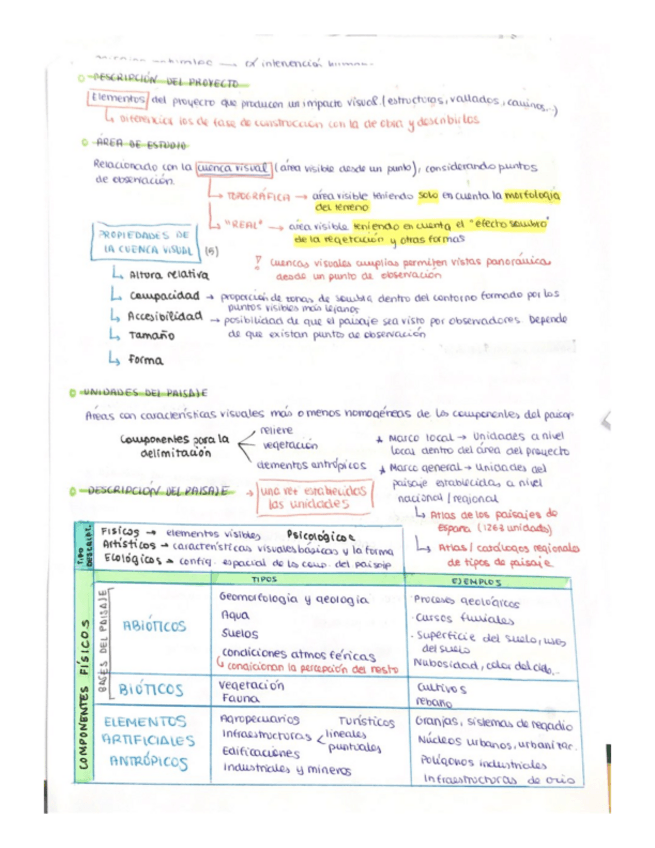 intervención humana
DESCRIPCIÓN DEL PROYECTO
Elementos del proyecto que producen un impacto visual (estructuras, vallados, caminos,..)
↳ Diferenciar los de fase de construcción con la de obra y describirlos
ÁREA DE ESTUDIO
Relacionado con la cuenca visual (área visible desde un punto), considerando puntos
de observación.
↳ TOPOGRÁFICA → área visible teniendo solo en cuenta la morfología
del terreno
↳ "REAL" → área visible teniendo en cuenta el "efecto sombra"
de la vegetación y otras formas
PROPIEDADES DE
LA CUENCA VISUAL (5)
! Cuencas visuales amplias permiten vistas panorámicas
desde un punto de observación
↳ Altura relativa
↳ Compacidad → proporción de zonas de sombra dentro del contorno formado por los
puntos visibles más lejanos
↳ Accesibilidad → posibilidad de que el paisaje sea visto por observadores. Depende
de que existan puntos de observación
↳ Tamaño
↳ Forma
UNIDADES DEL PAISAJE
Áreas con características visuales más o menos homogéneas de los componentes del paisaje
Componentes para la
delimitación
relieve
vegetación
elementos antrópicos
Marco local → Unidades a nivel
local dentro del área del proyecto
Marco general → Unidades del
paisaje establecidas a nivel
nacional / regional
↳ Atlas de los paisajes de
España (1263 unidades)
↳ Atlas / catálogos regionales
de tipos de paisaje
DESCRIPCIÓN DEL PAISAJE → una vez establecidas
las unidades
TIPO DESCRIPT.
Físicos → elementos visibles Psicológicos
Artísticos → características visuales básicas y la forma
Ecológicos → config. espacial de los comp. del paisaje
TIPOS EJEMPLOS
COMPONENTES FÍSICOS
BASES DEL PAISAJE
ABIÓTICOS
Geomorfología y geología
Agua
Suelos
Condiciones atmosféricas
↳ condicionan la percepción del resto
- Procesos geológicos
- Cursos fluviales
- Superficie del suelo, usos
del suelo
Nubosidad, color del cielo,..
BIÓTICOS
Vegetación
Fauna
Cultivos
rebaño
ELEMENTOS
ARTIFICIALES
ANTRÓPICOS
Agropecuarios Turísticos
Infraestructuras < lineales
puntuales
Edificaciones
Industriales y mineros
Granjas, sistemas de regadío
Núcleos urbanos,
Polígonos industriales
Infraestructuras de ocio